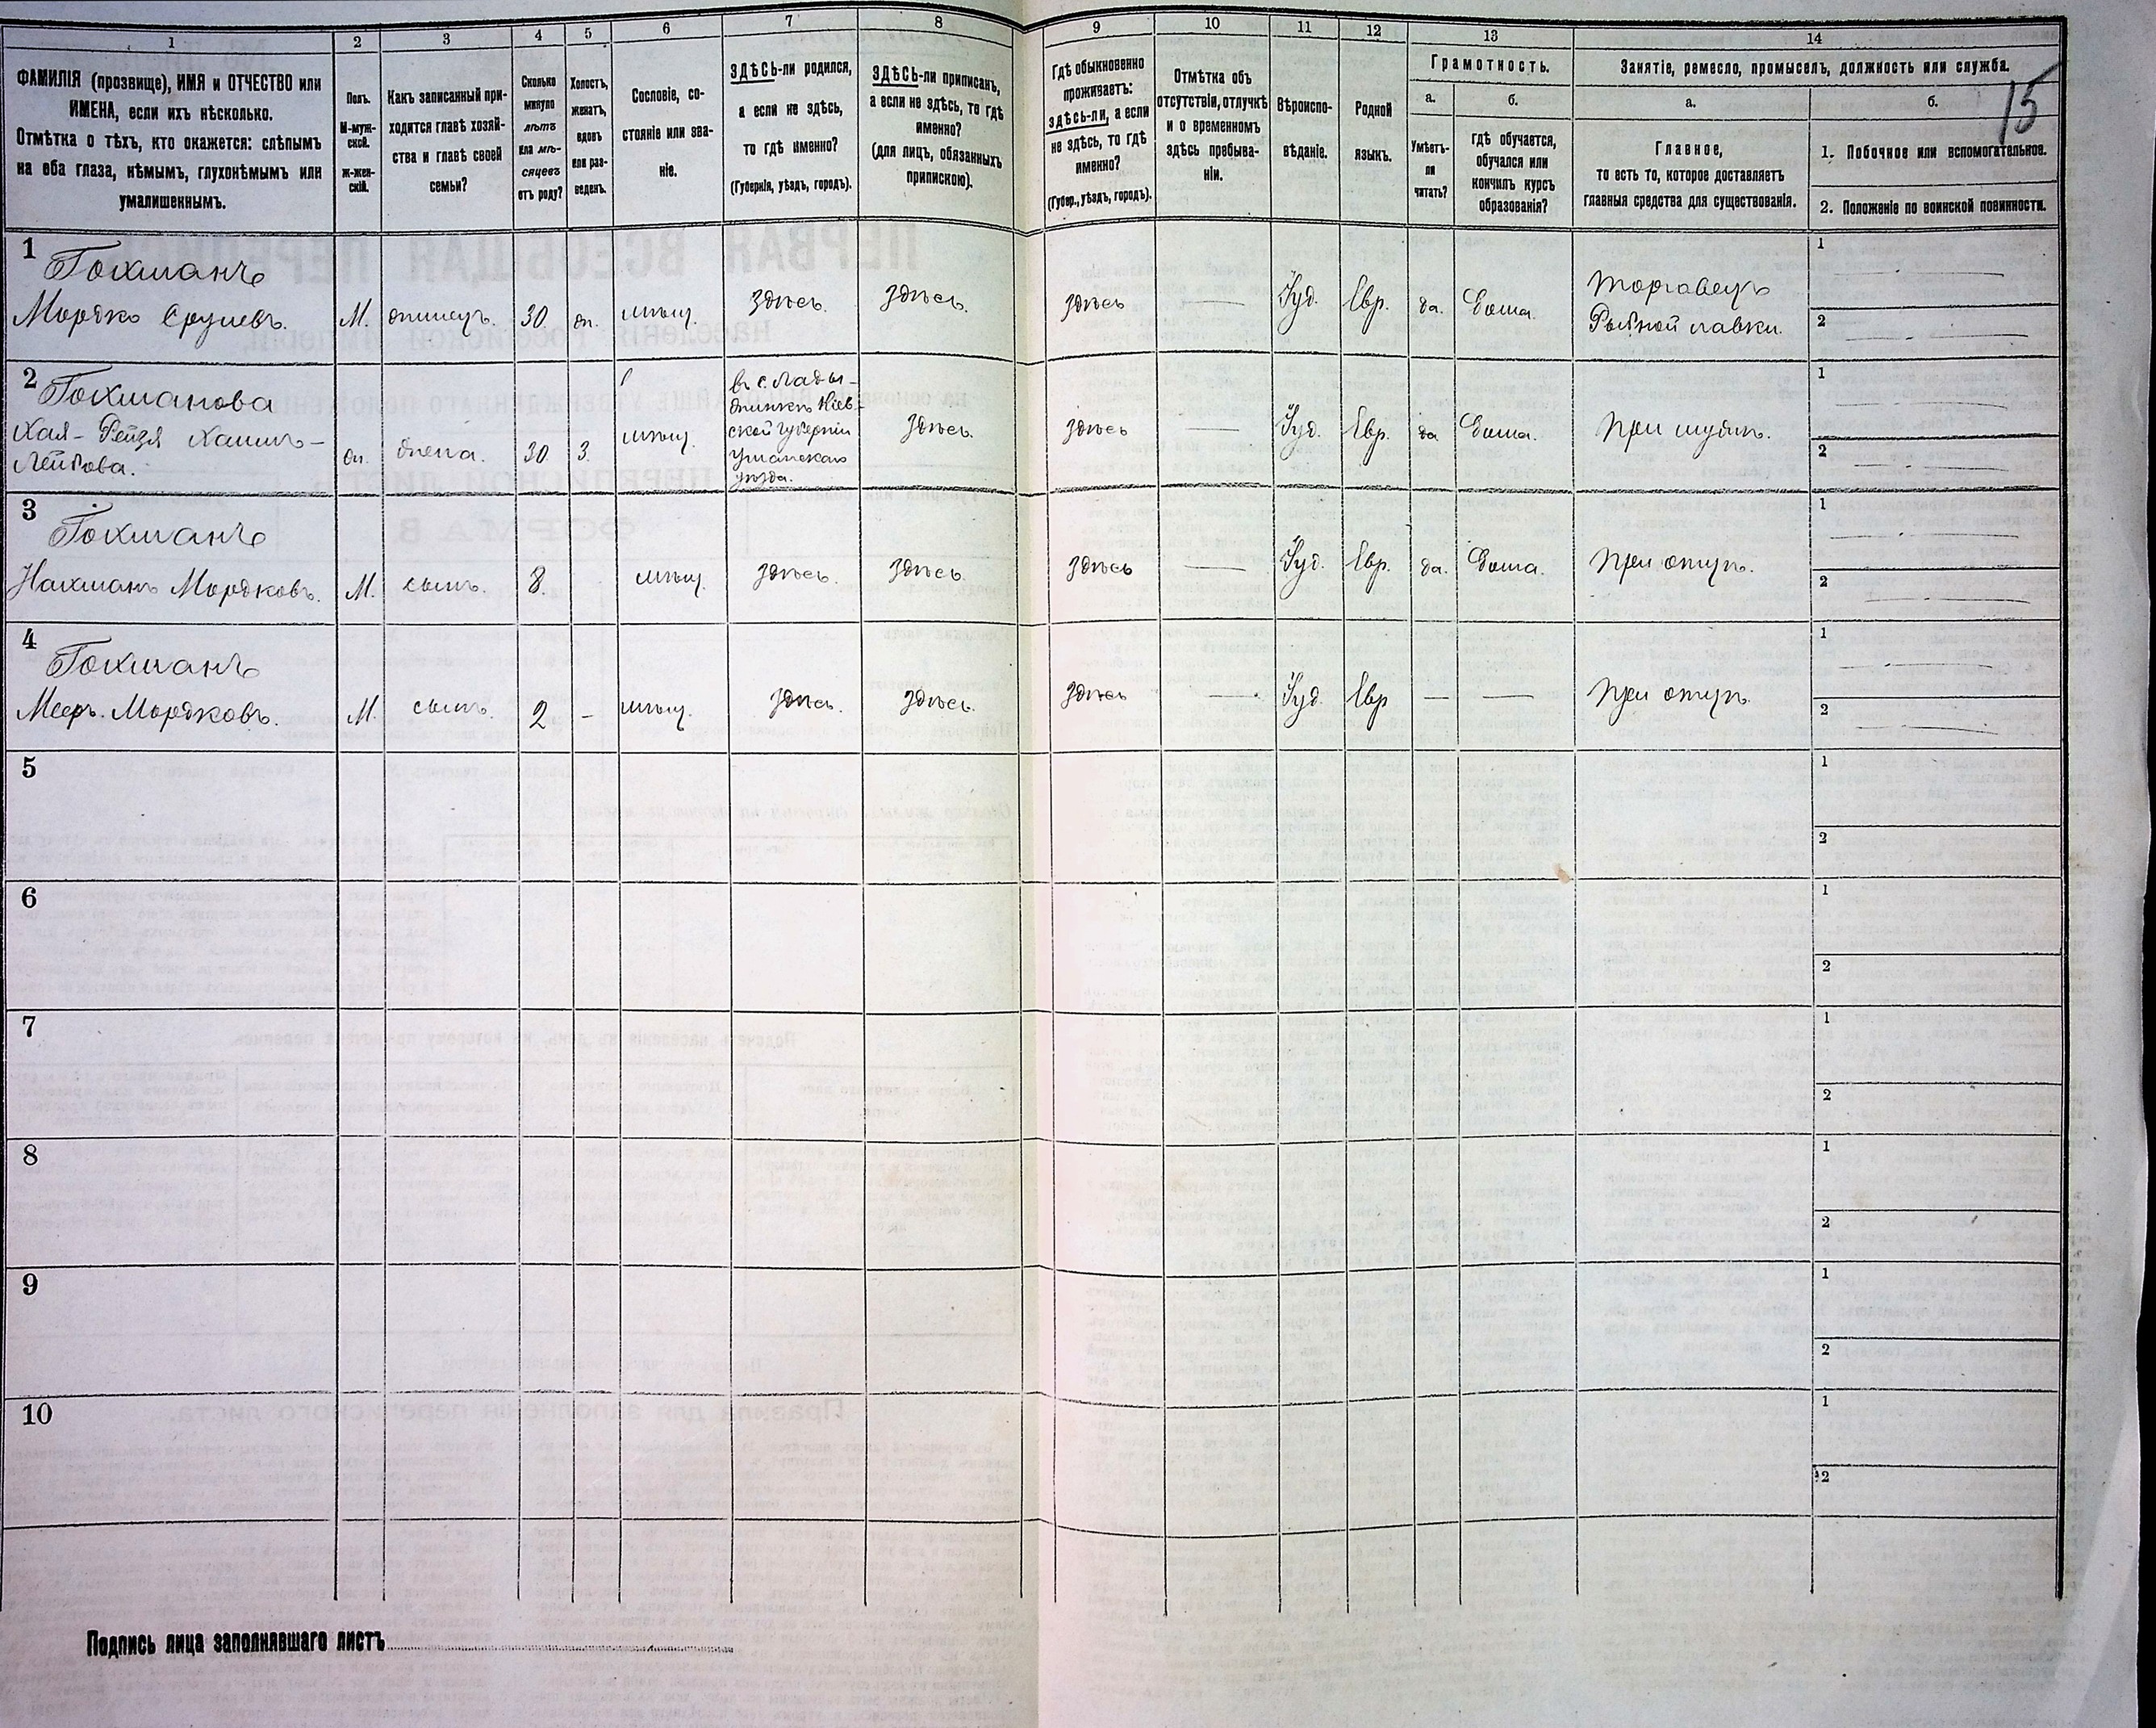 1
2
3
4
5
6
7
8
9
10
11
12
13
14
ФАМИЛІЯ (прозвище), ИМЯ и ОТЧЕСТВО или
ИМЕНА, если ихъ нѣсколько.
Отмѣтка о тѣхъ, кто окажется: слѣпымъ
на оба глаза, нѣмымъ, глухонѣмымъ или
умалишеннымъ.
Полъ.
М-муж-
ской.
Ж-жен-
скій.
Какъ записанный при-
ходится главѣ хозяй-
ства и главѣ своей
семьи?
Сколько
минуло
лѣтъ
или мѣ-
сяцевъ
отъ роду?
Холостъ,
женатъ,
вдовъ
или раз-
веденъ.
Сословіе, со-
стояніе или зва-
ніе.
ЗДѢСЬ-ли родился,
а если не здѣсь,
то гдѣ именно?
(Губернія, уѣздъ, городъ).
ЗДѢСЬ-ли приписанъ,
а если не здѣсь, то гдѣ
именно?
(для лицъ, обязанныхъ
припискою).
Гдѣ обыкновенно
проживаетъ:
здѣсь-ли, а если
не здѣсь, то гдѣ
именно?
(Губер., уѣздъ, городъ).
Отмѣтка объ
отсутствіи, отлучкѣ
и о временномъ
здѣсь пребыва-
ніи.
Вѣроиспо-
вѣданіе.
Родной
языкъ.
Грамотность.
а.
Умѣетъ-
ли
читать?
б.
гдѣ обучается,
обучался или
кончилъ курсъ
образованія?
Занятіе, ремесло, промыселъ, должность или служба.
а.
Главное,
то есть то, которое доставляетъ
главныя средства для существованія.
б.
15
1. Побочное или вспомогательное.
2. Положеніе по воинской повинности.
1
Гохманъ
Мордко Срулевъ. М. 30. мѣщ. здѣсь. здѣсь. здѣсь — Іуд. Евр. да. Дома. торговецъ
Рыбной лавки.
1
2
2
Гохманова
Хая-Рейзя Хаимъ-
Лейбова. жена. 30 3. мѣщ.
въ с. Лады-
жинкѣ Кіев-
ской губерніи
Уманскаго
уѣзда.
здѣсь. здѣсь — Іуд. Евр. да Дома. при мужѣ.
1
2
3
Гохманъ
Нахманъ Мордковъ. М. сынъ. 8. мѣщ. здѣсь. здѣсь. здѣсь — Іуд. Евр. да. Дома. при отцѣ.
1
2
4
Гохманъ
Мееръ Мордковъ. М. сынъ. 2 — мѣщ. здѣсь. здѣсь. здѣсь — Іуд. Евр — — при отцѣ.
1
2
5
1
2
6
1
2
7
1
2
8
1
2
9
1
2
10
1
2
Подпись лица заполнявшаго листъ